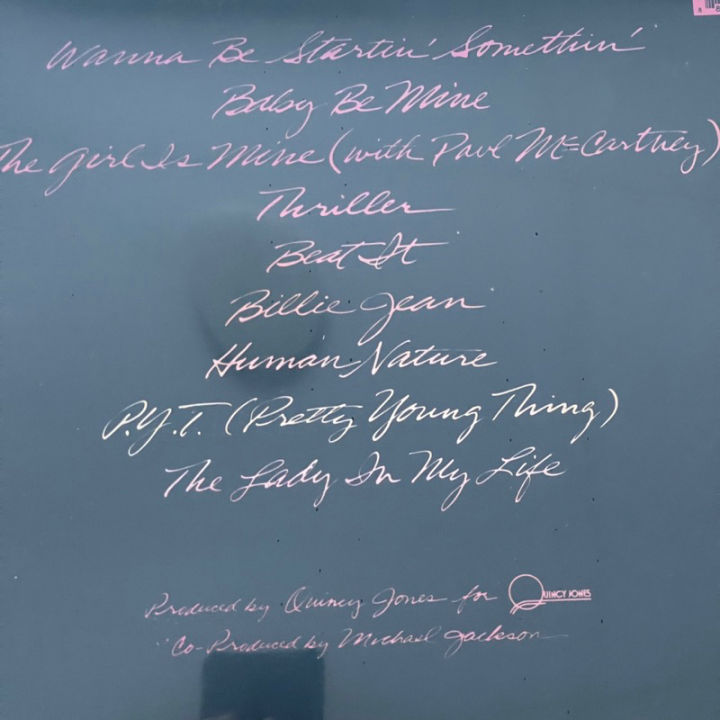 Wanna Be Startin' Somethin'
Baby Be Mine
The Girl Is Mine (with Paul McCartney)
Thriller
Beat It
Billie Jean
Human Nature
P.Y.T. (Pretty Young Thing)
The Lady In My Life
Produced by Quincy Jones for QUINCY JONES
Co-Produced by Michael Jackson